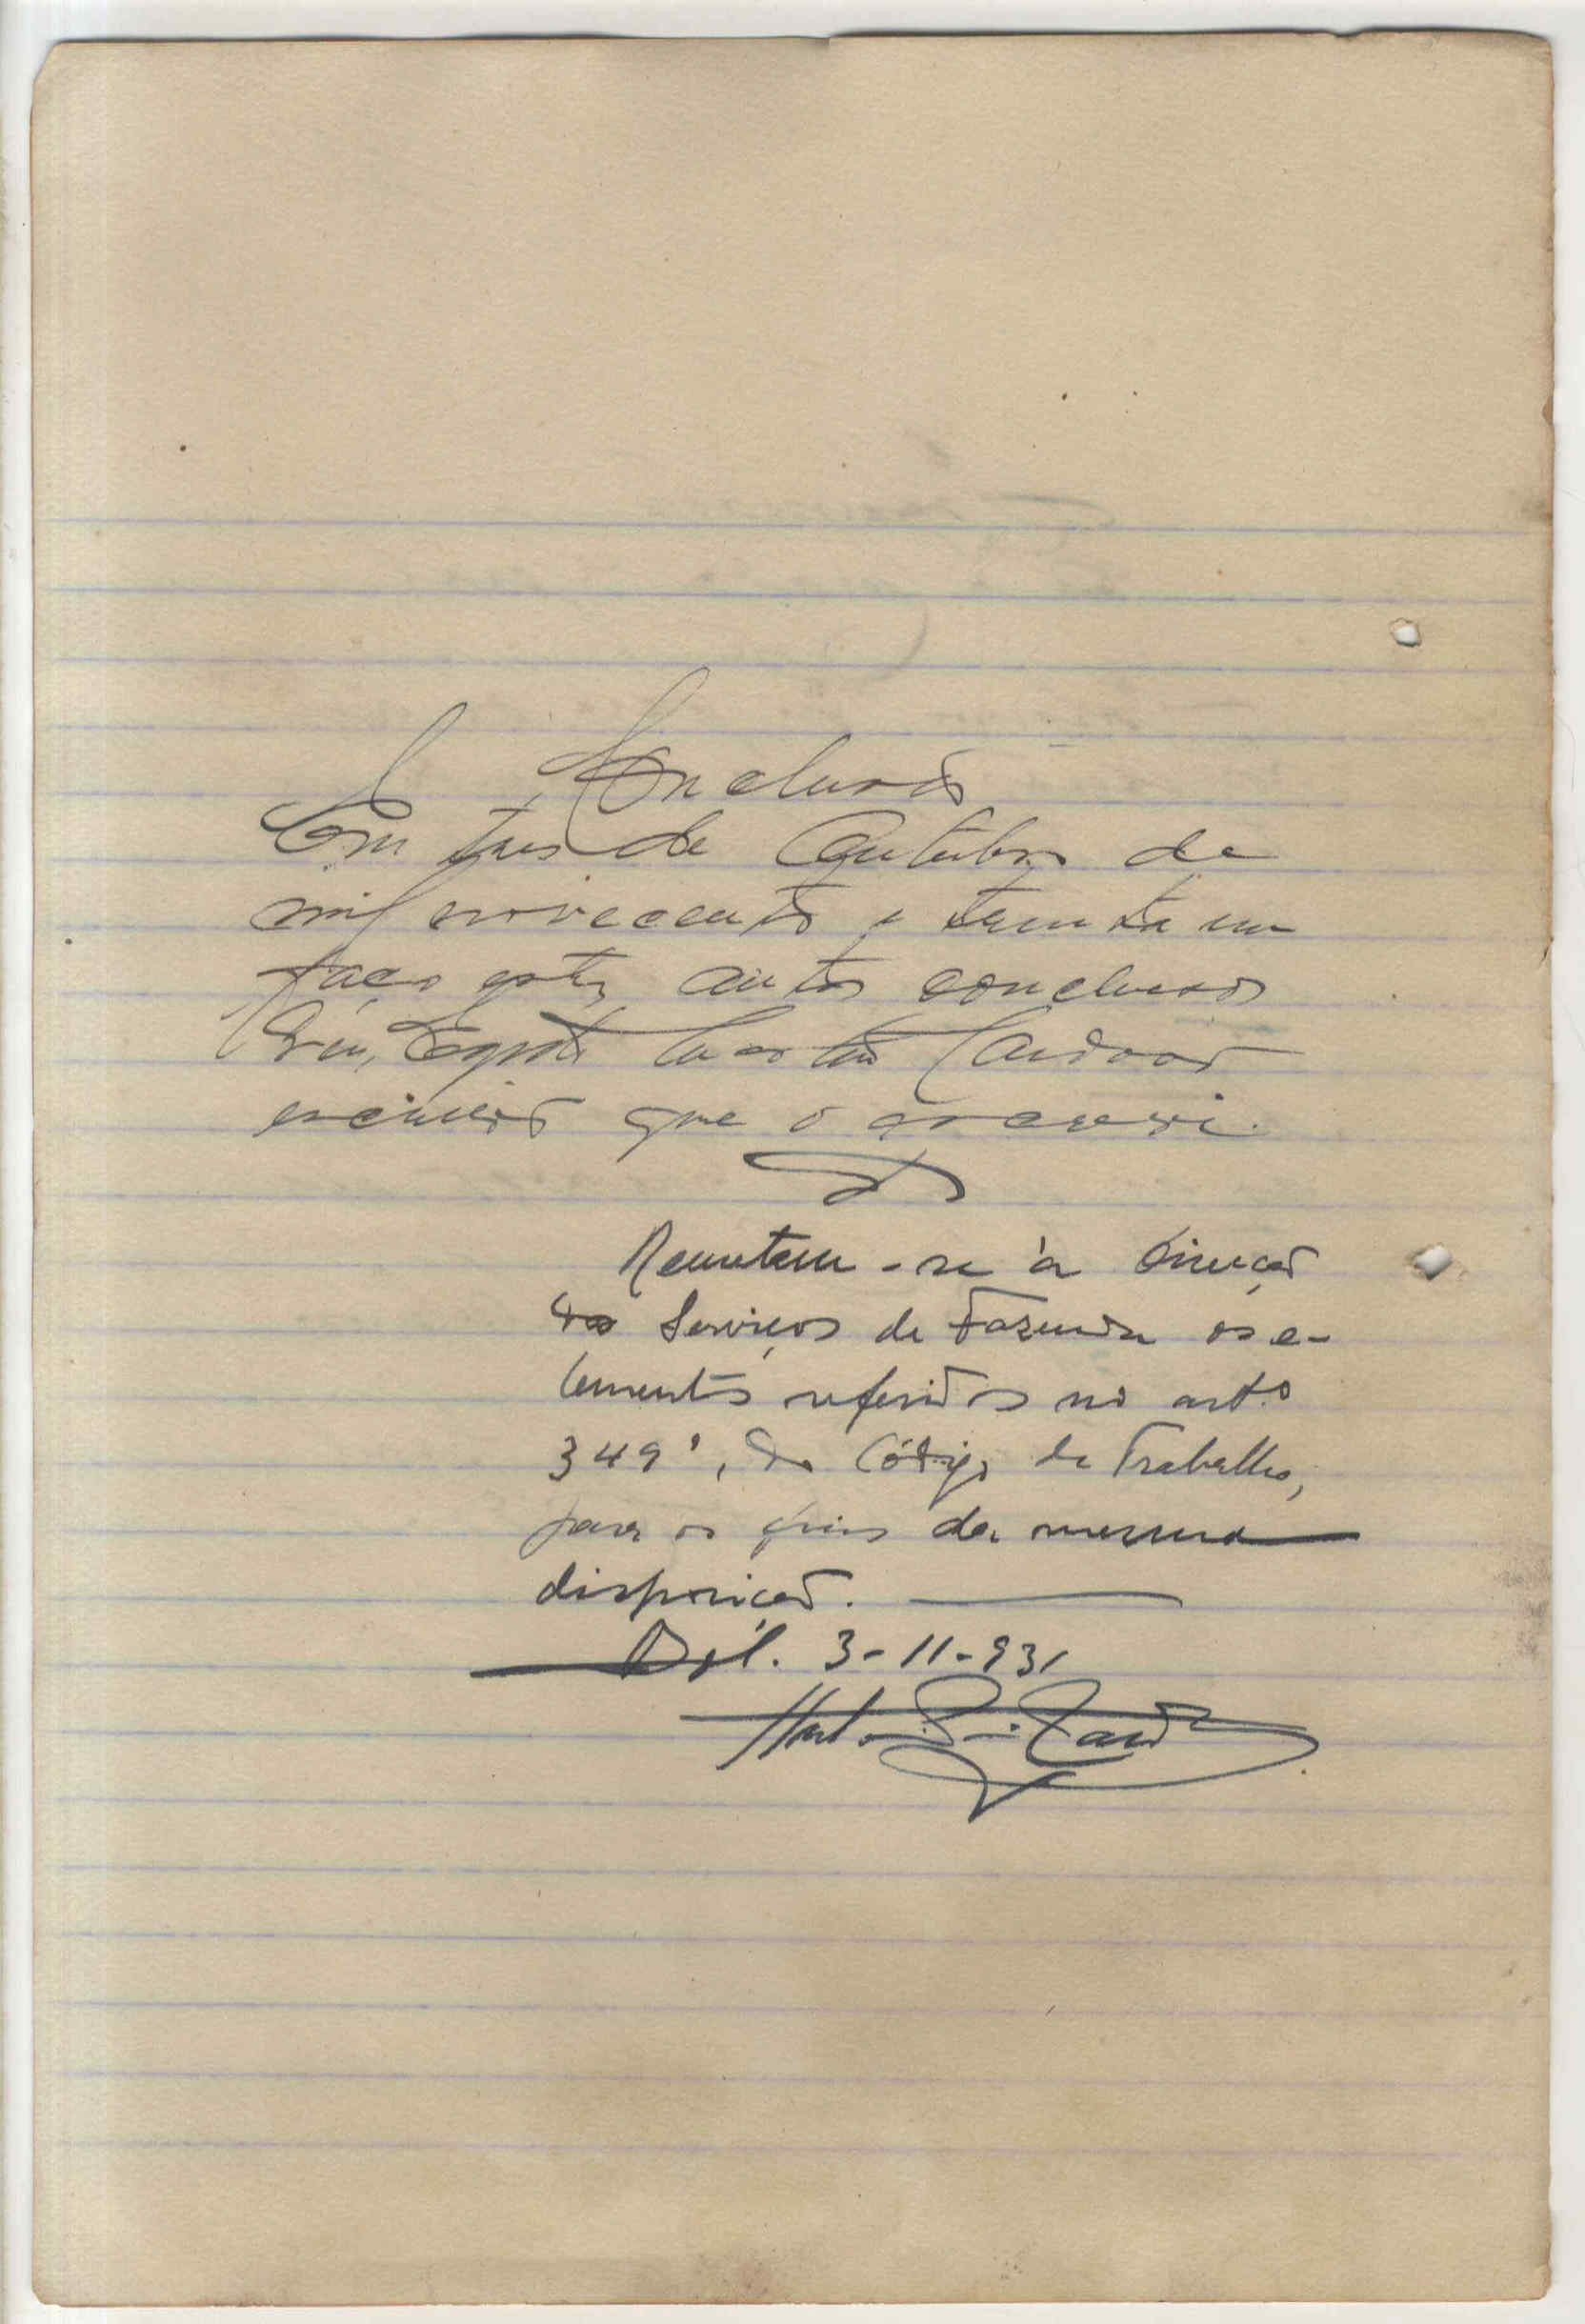 Conclusão
Em tres de Outubro de
mil novecentos e trinta um
faço estes autos conclusos
Eu, Cardoso
escrivão que o escrevi.
Remetem-se à Direcção
dos Serviços de Fazenda os e-
lementos referidos no art.º
349º, do Código de Trabalho,
para os fins da mesma
disposição.
3-11-931